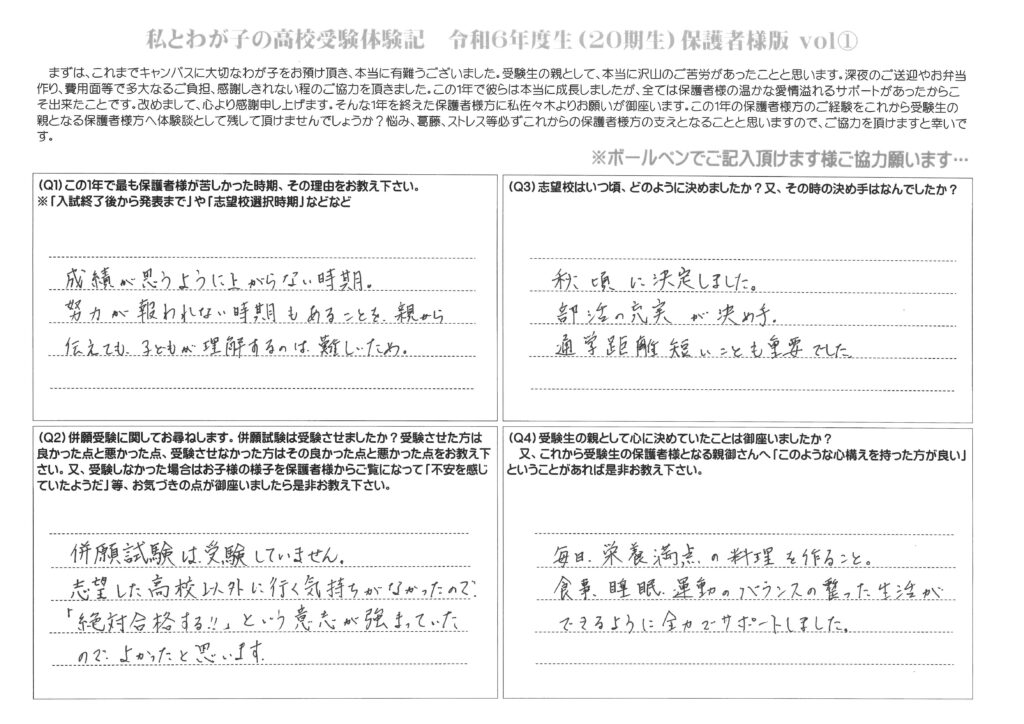 私とわが子の高校受験体験記　令和6年度生（20期生）保護者様版 vol①
まずは、これまでキャンバスに大切なわが子をお預け頂き、本当に有難うございました。受験生の親として、本当に沢山のご苦労があったことと思います。深夜のご送迎やお弁当
作り、費用面等で多大なるご負担、感謝しきれない程のご協力を頂きました。この1年で彼らは本当に成長しましたが、全ては保護者様の温かな愛情溢れるサポートがあったからこ
そ出来たことです。改めまして、心より感謝申し上げます。そんな1年を終えた保護者様方に私佐々木よりお願いが御座います。この1年の保護者様方のご経験をこれから受験生の
親となる保護者様方へ体験談として残して頂けませんでしょうか？悩み、葛藤、ストレス等必ずこれからの保護者様方の支えとなることと思いますので、ご協力を頂けますと幸いで
す。
※ボールペンでご記入頂けます様ご協力願います…
（Q1）この1年で最も保護者様が苦しかった時期、その理由をお教え下さい。
※「入試終了後から発表まで」や「志望校選択時期」などなど
成績が思うように上がらない時期。
努力が報われない時期もあることを、親から
伝えても、子どもが理解するのは難しいため。
（Q3）志望校はいつ頃、どのように決めましたか？又、その時の決め手はなんでしたか？
秋頃に決定しました。
部活の充実が決め手。
通学距離短いことも重要でした
（Q2）併願受験に関してお尋ねします。併願試験は受験させましたか？受験させた方は
良かった点と悪かった点、受験させなかった方はその良かった点と悪かった点をお教え下
さい。又、受験しなかった場合はお子様の様子を保護者様からご覧になって「不安を感じ
ていたようだ」等、お気づきの点が御座いましたら是非お教え下さい。
併願試験は受験していません。
志望した高校以外に行く気持ちがなかったので、
「絶対合格する!!」という意志が強まっていた
ので、よかったと思います。
（Q4）受験生の親として心に決めていたことは御座いましたか？
又、これから受験生の保護者様となる親御さんへ「このような心構えを持った方が良い」
ということがあれば是非お教え下さい。
毎日、栄養満点の料理を作ること。
食事、睡眠、運動のバランスの整った生活が
できるように全力でサポートしました。